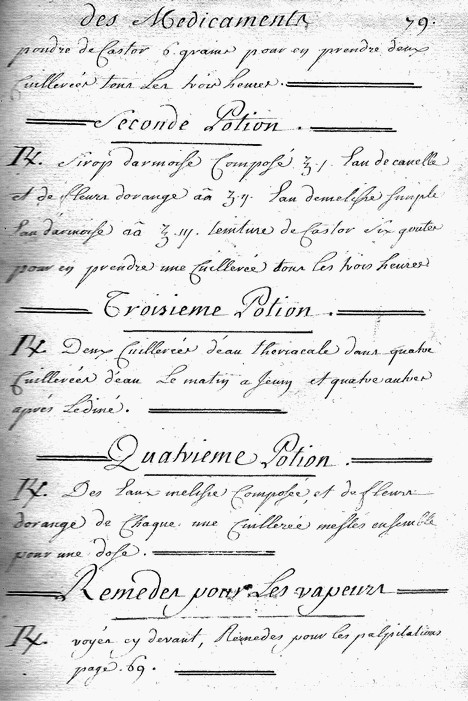 des Medicaments 79.
poudre de Castor 6 grains pour en prendre deux
Cuillerées tous les trois heures.
Seconde Potion.
℞. Sirop darmoise Composé ʒ.j. Eau de canelle
et de fleurs dorange aã ʒ.ij. Eau demelisse simple
Eau d'armoise aã ʒ.iij. teinture de Castor Six goutes
pour en prendre une Cuillerée tous les trois heures
Troisieme Potion.
℞. Deux Cuillerées d'eau theriacale dans quatre
Cuillerées d'eau Le matin a Jeun et quatre autres
aprés Lediné.
Quatrieme Potion.
℞. Des Eaux melisse Composée, et de fleurs
dorange de Chaque une Cuillerée meslés ensemble
pour une dose.
Remedes pour Les vapeurs
℞. voyés cy devant, Remedes pour les palpitations
page. 69.